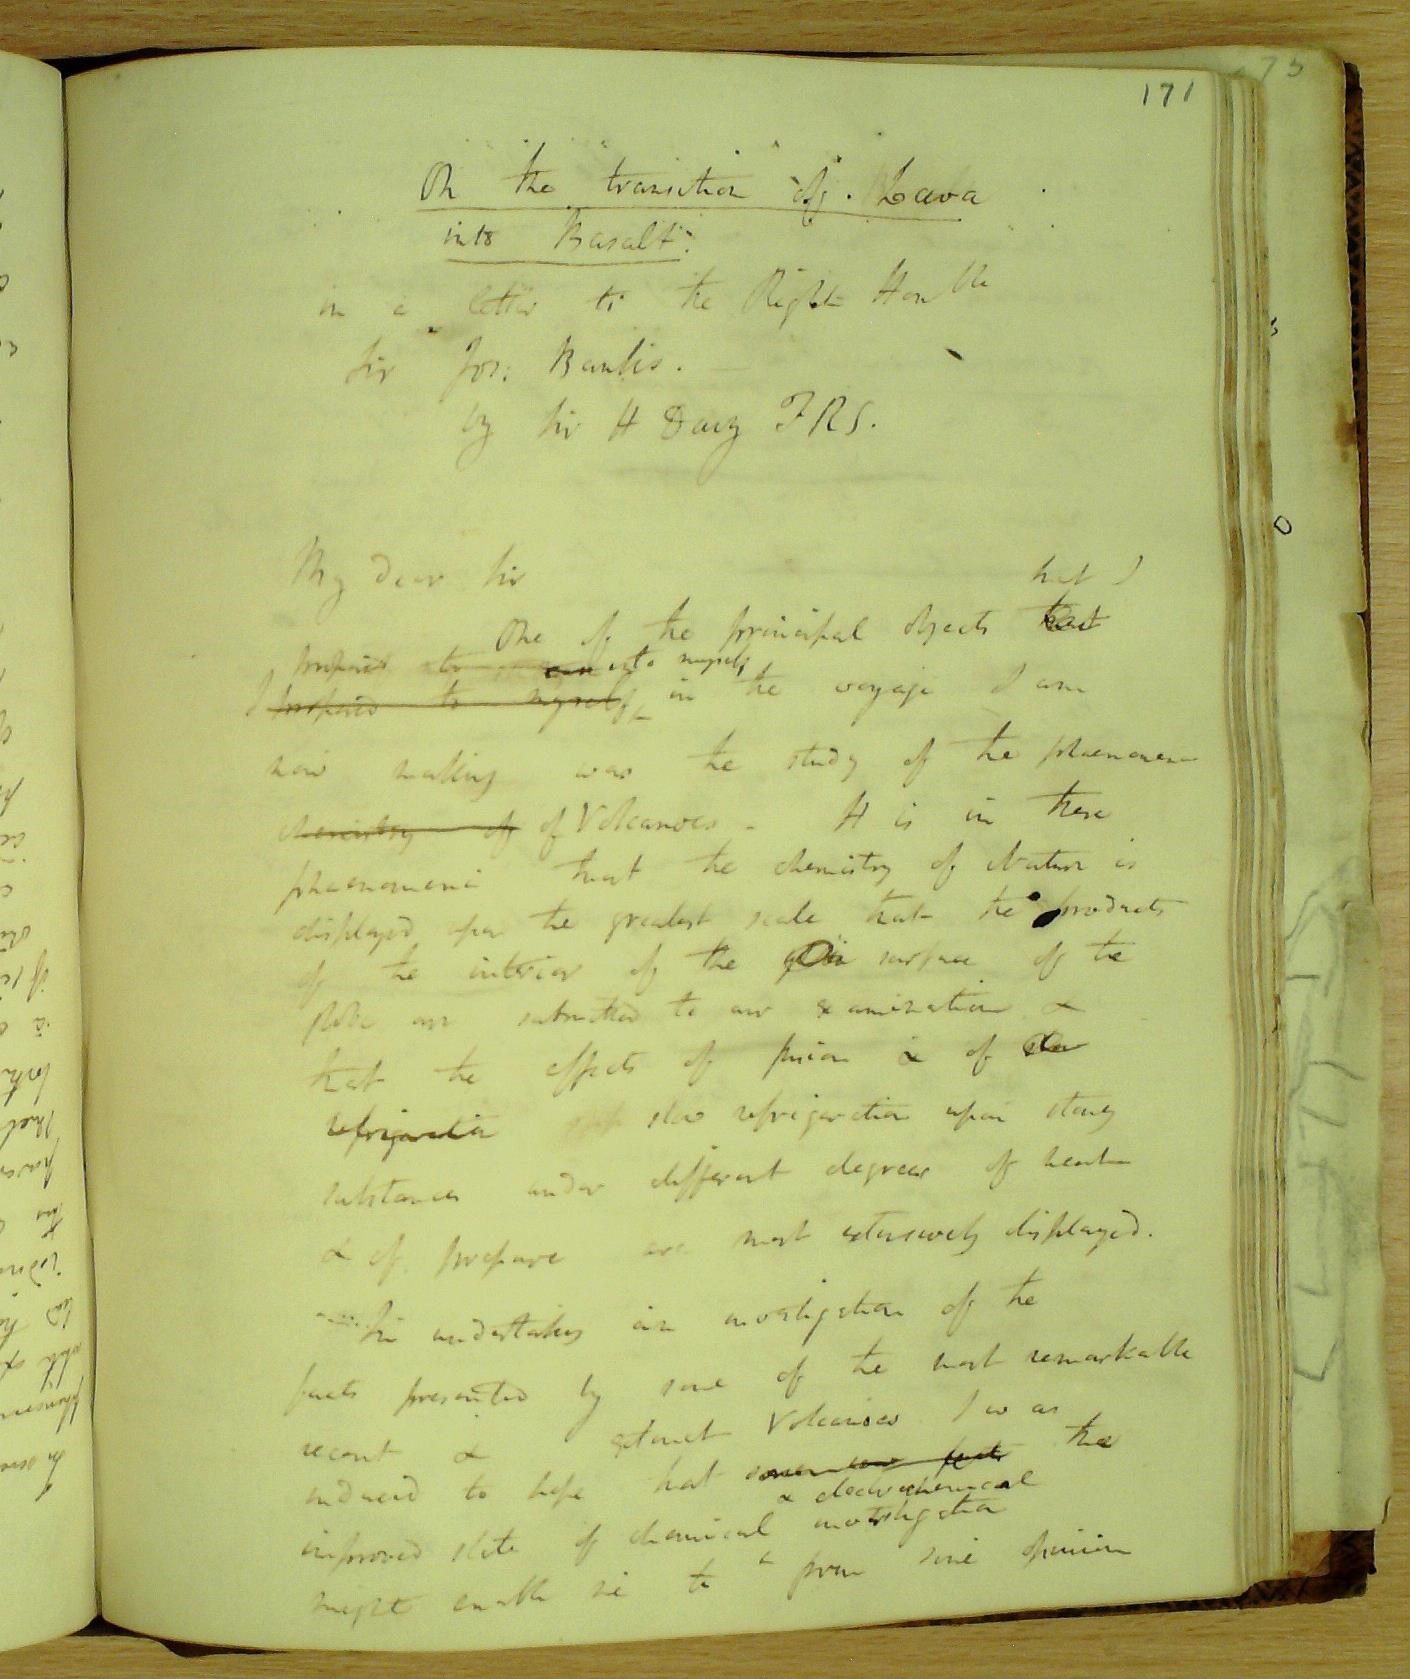 171
On the transition of Lava
into Basalt.
in a letter to the Right Honble
Sir Jos: Banks.
by Sir H Davy FRS.
My dear Sir
that I
One of the principal objects that
proposed to myself
I proposed to myself in the voyage I am
now making was the study of the phaenomena
chemistry of of Volcanoes - It is in these
phaenomena that the chemistry of Nature is
displayed upon the greatest scale that the products
of the interior of the surface of the
globe are submitted to our examination &
that the effects of fusion & of slow
refrigeration slow refrigeration upon stoney
substances under different degrees of heat
& of pressure are most extensively displayed.
In undertaking an investigation of the
facts presented by some of the most remarkable
recent & extinct Volcanoes I was
induced to hope that some new facts the
& electrochemical
improved state of chemical investigation
might enable me to form some opinion